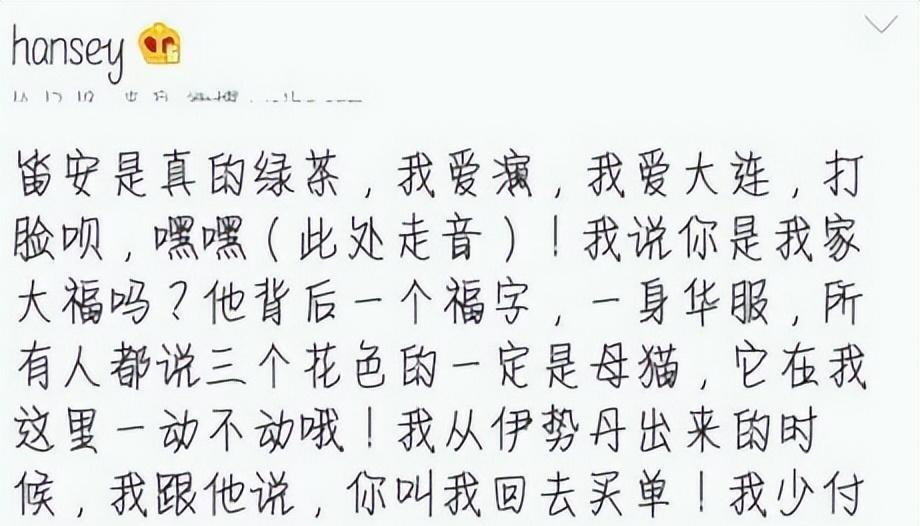 hansey
笛安是真的绿茶，我爱演，我爱大连，打
脸呗，嘿嘿（此处走音）！我说你是我家
大福吗？他背后一个福字，一身华服，所
有人都说三个花色的一定是母猫，它在我
这里一动不动哦！我从伊势丹出来的时
候，我跟他说，你叫我回去买单！我少付